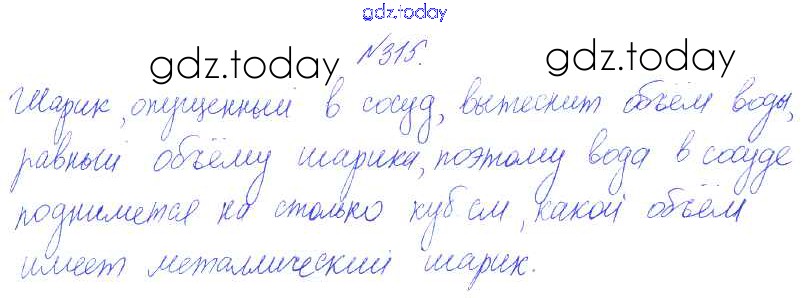 gdz.today
№315.
gdz.today gdz.today
Шарик, опущенный в сосуд, вытеснит объём воды,
равный объёму шарика, поэтому вода в сосуде
поднимется на столько куб см, какой объём
имеет металлический шарик.